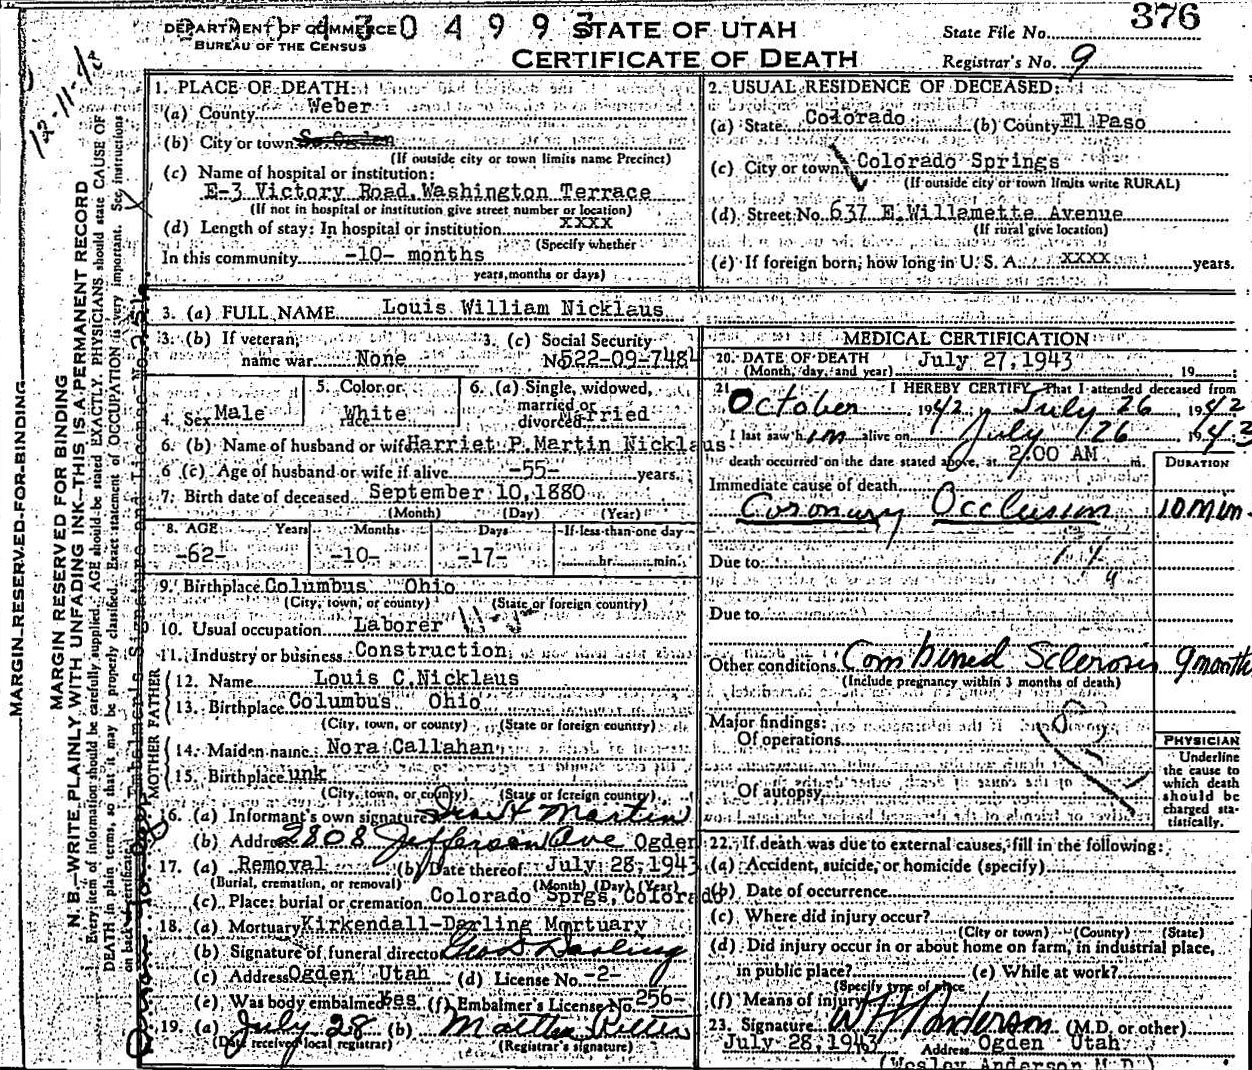 DEPARTMENT OF COMMERCE
BUREAU OF THE CENSUS
4 3 0 4 9 9 3
STATE OF UTAH
CERTIFICATE OF DEATH
State File No. 376
Registrar's No. 9
12-11-
MARGIN RESERVED FOR BINDING
MARGIN RESERVED FOR BINDING
N. B.—WRITE PLAINLY WITH UNFADING INK—THIS IS A PERMANENT RECORD
Every item of information should be carefully supplied. AGE should be stated EXACTLY. PHYSICIANS should state CAUSE OF
DEATH in plain terms, so that it may be properly classified. Exact statement of OCCUPATION is very important. See instructions
on back of certificate.
1. PLACE OF DEATH:
(a) County Weber
(b) City or town So. Ogden
(If outside city or town limits name Precinct)
(c) Name of hospital or institution:
E-3 Victory Road, Washington Terrace
(If not in hospital or institution give street number or location)
(d) Length of stay: In hospital or institution xxxx
(Specify whether
In this community -10- months
years, months or days)
2. USUAL RESIDENCE OF DECEASED:
(a) State Colorado (b) County El Paso
(c) City or town Colorado Springs
(If outside city or town limits write RURAL)
(d) Street No. 637 E. Willamette Avenue
(If rural give location)
(e) If foreign born, how long in U. S. A. xxxx years.
3. (a) FULL NAME Louis William Nicklaus
3. (b) If veteran, name war None
3. (c) Social Security No. 522-09-7484
4. Sex Male
5. Color or race White
6. (a) Single, widowed, married or divorced Married
6. (b) Name of husband or wife Harriet P. Martin Nicklaus
6 (c). Age of husband or wife if alive -55- years.
7. Birth date of deceased September 10, 1880
(Month) (Day) (Year)
8. AGE Years Months Days If less than one day
-62- -10- -17- hr. min.
9. Birthplace Columbus Ohio
(City, town, or county) (State or foreign country)
10. Usual occupation Laborer
11. Industry or business Construction
FATHER
12. Name Louis C. Nicklaus
13. Birthplace Columbus Ohio
(City, town, or county) (State or foreign country)
MOTHER
14. Maiden name Nora Callahan
15. Birthplace unk
(City, town, or county) (State or foreign country)
16. (a) Informant's own signature Ira H Martin
(b) Address 2808 Jefferson Ave Ogden
17. (a) Removal (b) Date thereof July 28, 1943
(Burial, cremation, or removal) (Month) (Day) (Year)
(c) Place: burial or cremation Colorado Sprgs, Colorado
18. (a) Mortuary Kirkendall-Darling Mortuary
(b) Signature of funeral director Geo S Darling
(c) Address Ogden Utah (d) License No. -2-
(e) Was body embalmed Yes (f) Embalmer's License No. 256-
19. (a) July 28 (b)
(Date received local registrar) (Registrar's signature)
MEDICAL CERTIFICATION
20. DATE OF DEATH July 27, 1943
(Month, day, and year) 19
21. I HEREBY CERTIFY, That I attended deceased from
October 1942 July 26, 1942
I last saw him alive on July 26 1943
death occurred on the date stated above, at 2:00 AM m.
DURATION
Immediate cause of death
Coronary Occlusion 10 min.
Due to
Due to
Other conditions Combined Sclerosis 9 months
(Include pregnancy within 3 months of death)
Major findings:
Of operations
Of autopsy
PHYSICIAN
Underline
the cause to
which death
should be
charged sta-
tistically.
22. If death was due to external causes, fill in the following:
(a) Accident, suicide, or homicide (specify)
(b) Date of occurrence
(c) Where did injury occur?
(City or town) (County) (State)
(d) Did injury occur in or about home on farm, in industrial place,
in public place? (e) While at work?
(Specify type of place
(f) Means of injury
23. Signature W Anderson (M.D. or other)
July 28, 1943 Address Ogden Utah
(Wesley Anderson M.D.)